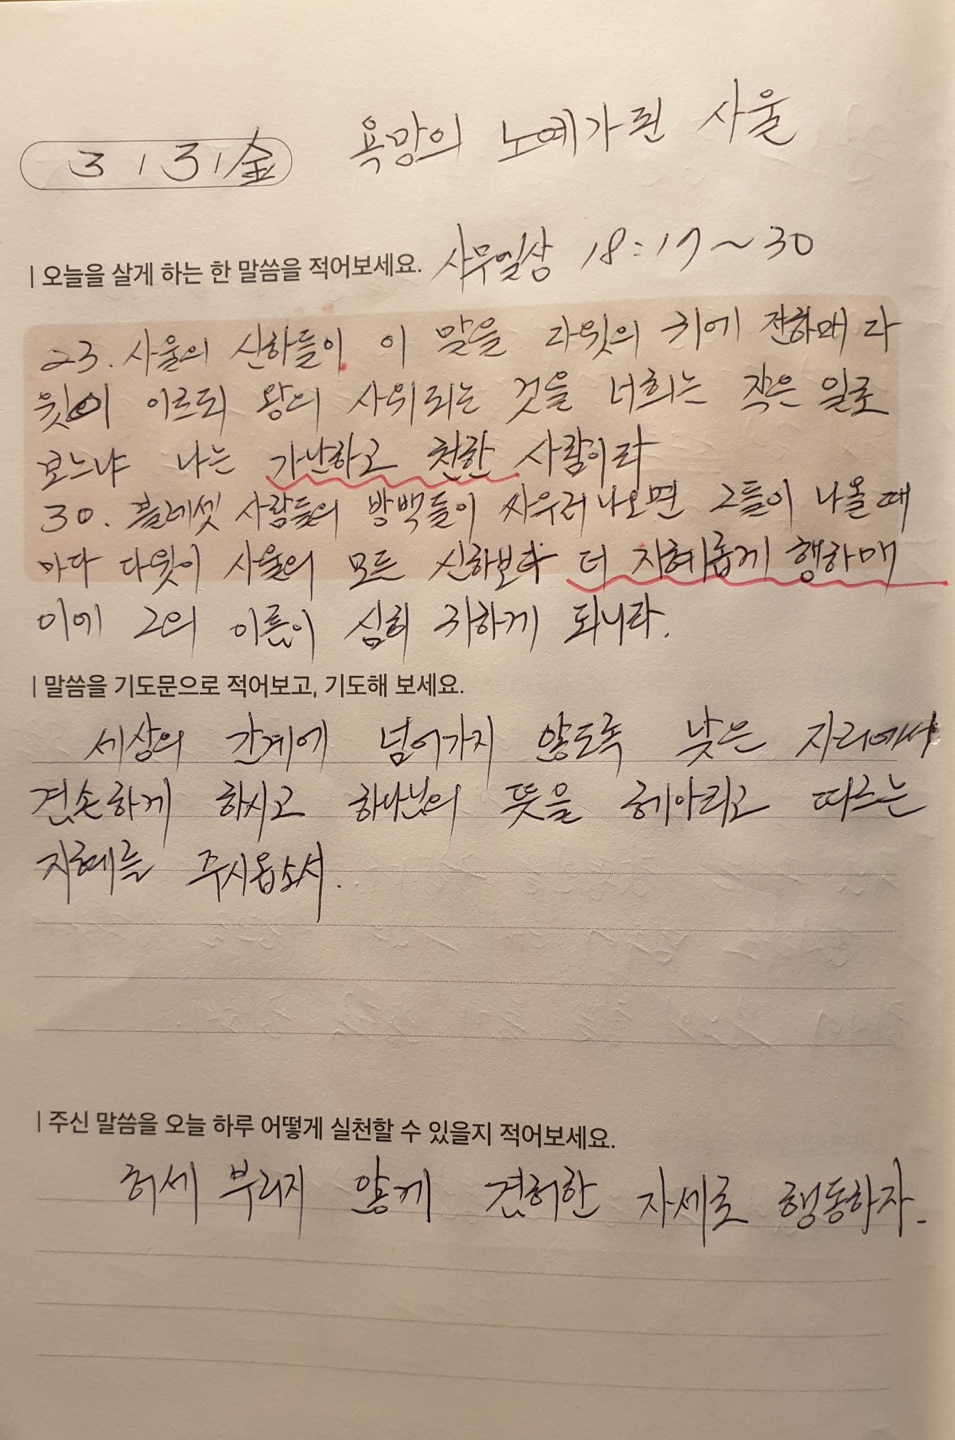 욕망의 노예가된 사울
3 / 3 / 金
| 오늘을 살게 하는 한 말씀을 적어보세요. 사무일상 18:17~30
23. 사울의 신하들이 이 말을 다윗의 귀에 전하매 다
윗이 이르되 왕의 사위되는 것을 너희는 작은 일로
보느냐 나는 가난하고 천한 사람이라
30. 블레셋 사람들의 방백들이 싸우러나오면 그들이 나올때
마다 다윗이 사울의 모든 신하보다 더 지혜롭게 행하매
이에 그의 이름이 심히 귀하게 되니라.
| 말씀을 기도문으로 적어보고, 기도해 보세요.
세상의 간계에 넘어가지 않도록 낮은 자리에서
겸손하게 하시고 하나님의 뜻을 헤아리고 따르는
지혜를 주시옵소서.
| 주신 말씀을 오늘 하루 어떻게 실천할 수 있을지 적어보세요.
허세 부리지 않게 겸허한 자세로 행동하자.